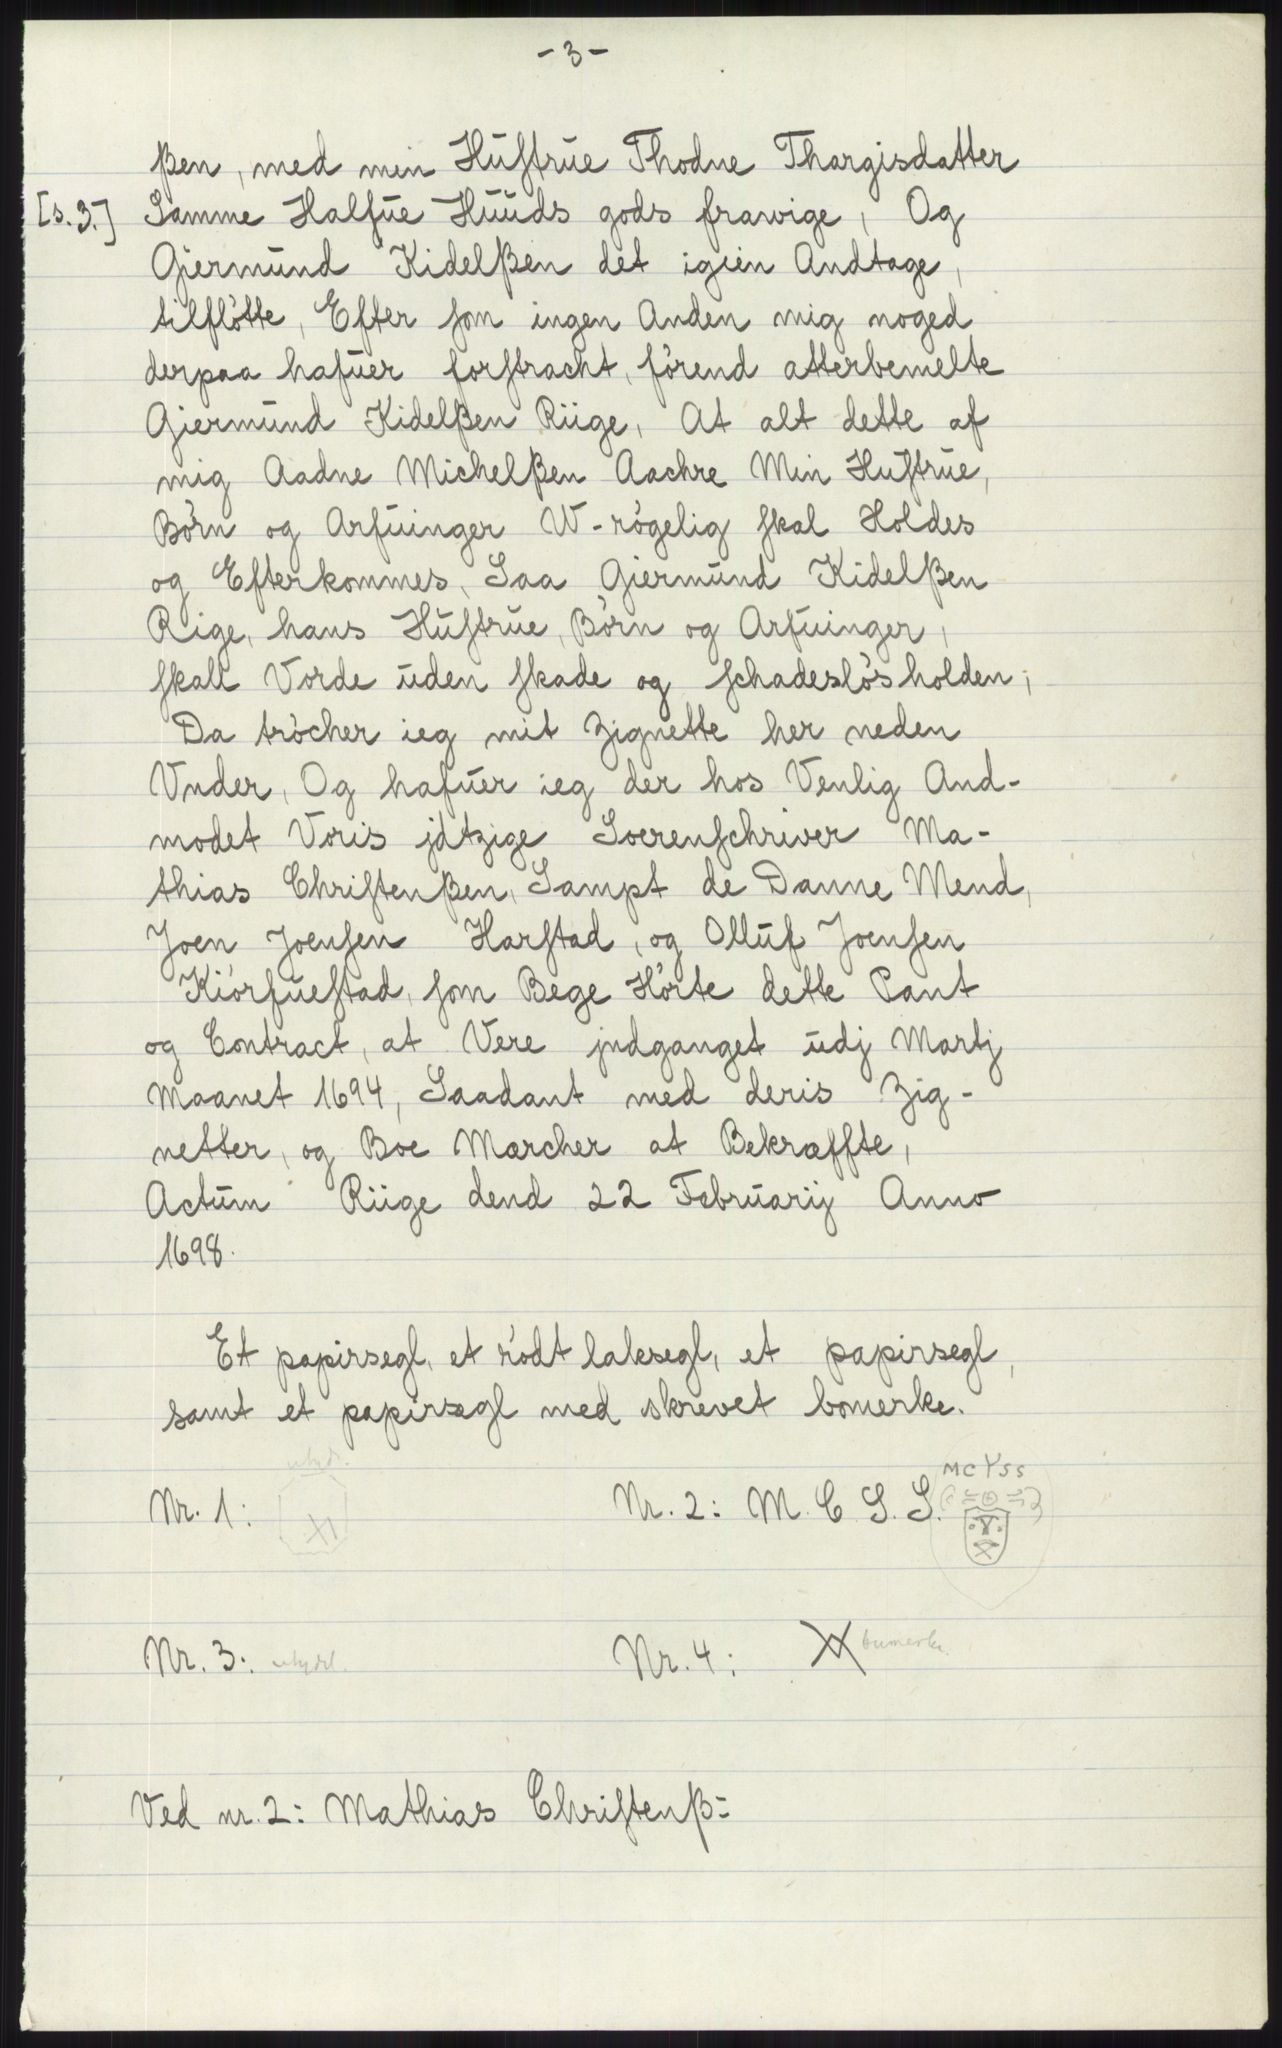 - 3 -
ßen, med min Huſtrue Thodne Thargisdatter
[s.3.] Samme Halfue Huuds gods frawige, Og
Gjermund Kidelßen det igien Andtage,
tilfløtte, Efter ſom ingen Anden mig noged
derpaa hafuer forſtracht, førend atterbemelte
Gjermund Kidelßen Riige, At alt dette af
mig Aadne Michelßen Aachre Min Huſtrue,
Børn og Arfuinger W-røgelig ſkal Holdes
og Efterkommes, Saa Giermund Kidelßen
Rige, hans Huſtrue, Børn og Arfuinger,
ſkall Vorde uden ſkade og ſchadesløs holden;
Da trøcher ieg mit Zignette her neden
Vnder, Og hafuer ieg der hos Venlig And-
modet Voris jdtzige Soerenſchriver Ma-
thias Chriſtenßen, Sampt de Danne Mend,
Joen Joenſen Harſtad, og Olluf Joenſen
Kiørfueſtad, ſom Bege Hørte dette Pant
og Contract, at Vere jndganget udj Martj
Maanet 1694, Saadant med deris Zig-
netter, og Boe Mærcher at Bekræffte,
Actum Riige dend 22 Februarij Anno
1698.
Et papirsegl, et rødt laksegl, et papirsegl,
samt et papirsegl med skrevet bomerke.
utydl.
MCYSS
Nr. 1: Nr. 2: M. C. S. S.
Nr. 3: utydel. Nr. 4: bumerke
Ved nr. 2: Mathias Chriſtenß: